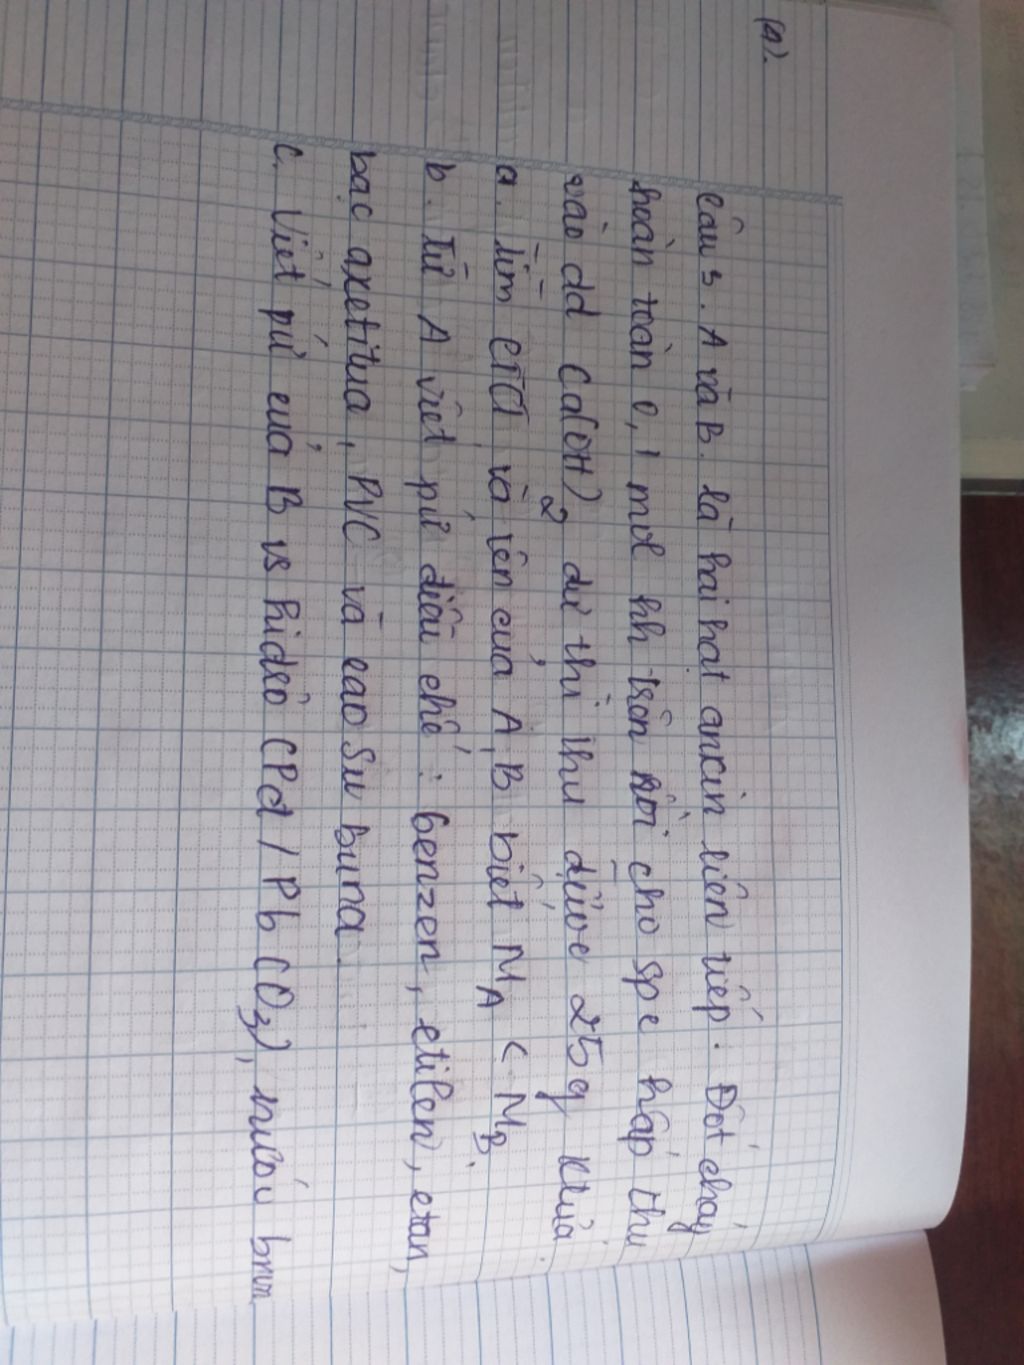 (A).
Câu 3. A và B. là hai hạt ankin liên tiếp. Đốt cháy
hoàn toàn 0,1 mol hh trên rồi cho spc hấp thu
vào dd Ca(OH)2 dư thì thu được 25g ktủa.
a. tìm CTCT và tên của A, B biết MA < MB.
b. Từ A viết pứ điều chế: benzen, etilen, etan,
bạc axetilua, PVC và cao su buna.
c. Viết pứ của B vs hidro (Pd / Pb CO3), nước brom